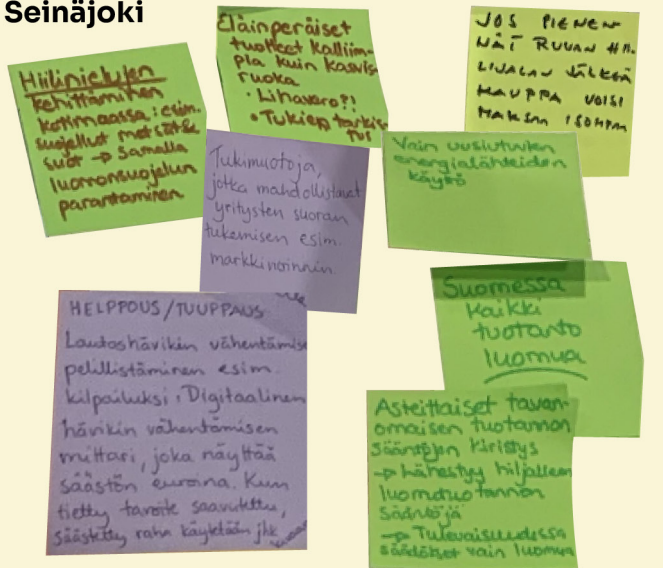 Seinäjoki
Hiilinielujen
kehittäminen
kotimaassa: esim.
suojellut metsät &
suot → Samalla
luonnonsuojelun
parantaminen
Eläinperäiset
tuotteet kalliim-
pia kuin kasvis-
ruoka
• Lihavero?!
• Tukien tarkis-
tus
JOS PIENEN-
NÄT RUUAN HII-
LIJALAN JÄLKEÄ
KAUPPA VOISI
MAKSAA ISOMPAA
Tukimuotoja,
jotka mahdollistavat
yritysten suoran
tukemisen esim.
markkinoinnin.
Vain uusiutuvien
energialähteiden
käyttö
HELPPOUS/TUUPPAUS
Lautashävikin vähentämise
pelillistäminen esim.
kilpailuksi. Digitaalinen
hävikin vähentämisen
mittari, joka näyttää
säästön euroina. Kun
tietty tavoite saavutettu,
säästetty raha käytetään jhk
Suomessa
kaikki
tuotanto
luomua
Asteittaiset tavan-
omaisen tuotannon
sääntöjen kiristys
→ Lähestyy hiljalleen
luomutuotannon
sääntöjä
→ Tulevaisuudessa
säädökset vain luomua